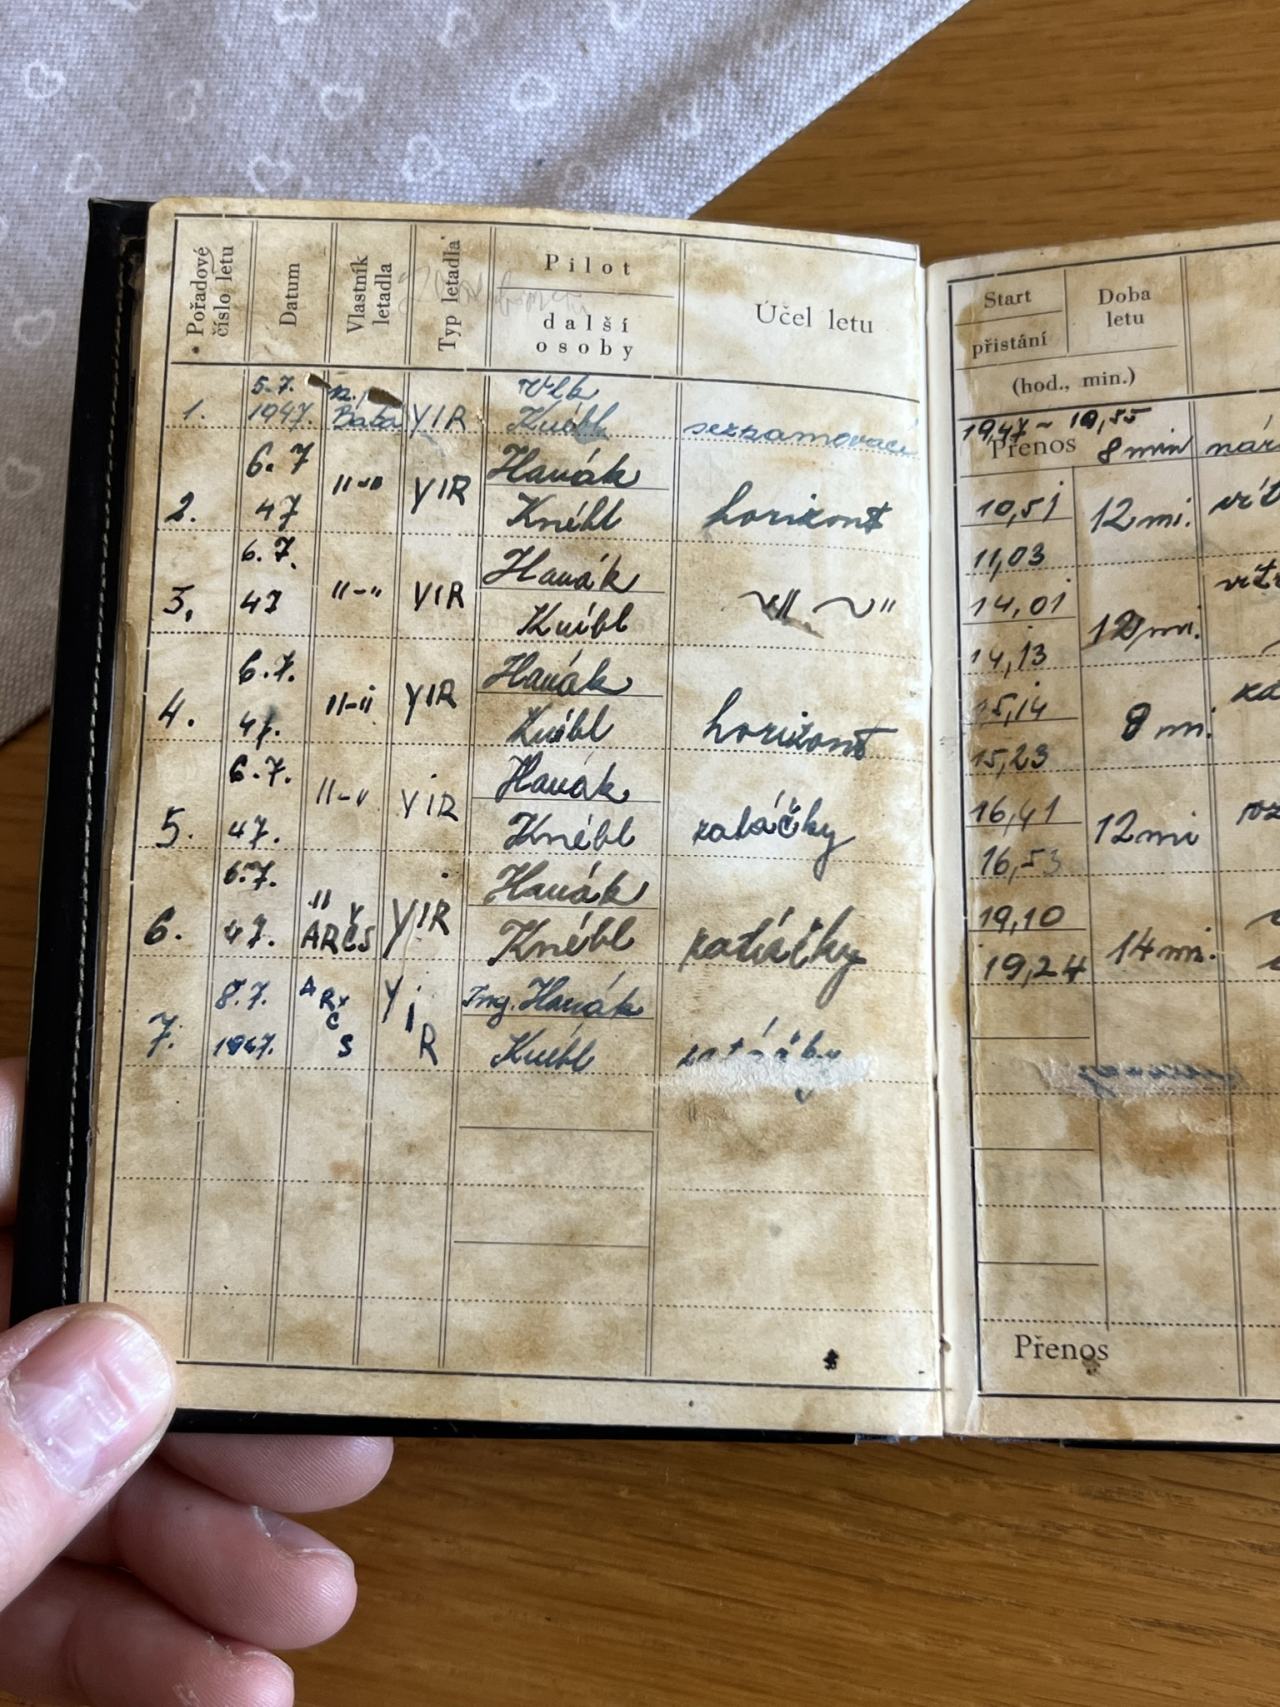 Pořadové číslo letu
Datum
Vlastník letadla
Typ letadla
Pilot
další osoby
Účel letu
Start
přistání
Doba letu
(hod., min.)
5.7. Vlk
1. 1947. Baťa YIR Knébl seznamovací
6.7 Hanák
2. 47 "-" YIR Knébl horizont
6.7. Hanák
3. 47 "-" YIR Knébl ~"~"
6.7. Hanák
4. 47. "-" YIR Knébl horizont
6.7. Hanák
5. 47. "-" YIR Knébl zatáčky
6.7. " Hanák
6. 47. ARČS YIR Knébl zatáčky
8.7. Ing. Hanák
7. 1947. ARČS YiR Knébl zatáčky
19,47 - 19,55
Přenos 8 min
10,51 12 mi.
11,03
14,01 12 mi.
14,13
15,14 8 mi.
15,23
16,41 12 mi
16,53
19,10 14 mi.
19,24
Přenos